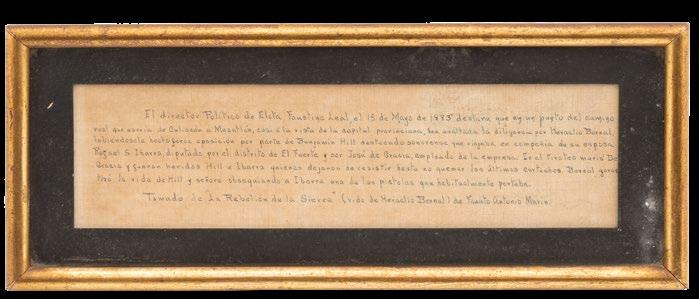 El director Político de Elota, Faustino Leal, el 15 de Mayo de 1885 declara que en un punto del camino
real que corría de Culiacán a Mazatlán, casi a la vista de la capital provinciana, fue asaltada la diligencia por Heraclio Bernal,
habiéndosele hecho feroz oposición por parte de Benjamín Hill destacado sonorense que viajaba en compañía de su esposa
Rafael S. Ibarra, diputado por el distrito de El Fuerte y por José de Gracia, empleado de la empresa. En el tiroteo murió De
Gracia y fueron heridos Hill e Ibarra quienes dejaron de resistir hasta no quemar los últimos cartuchos. Bernal garan
tizó la vida de Hill y señora obsequiando a Ibarra una de las pistolas que habitualmente portaba.
Tomado de "La Rebelión de la Sierra" (vida de Heraclio Bernal) de Fausto Antonio Marín.